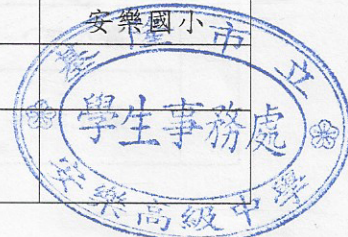 安樂國小
基隆市立
學生事務處
安樂高級中學